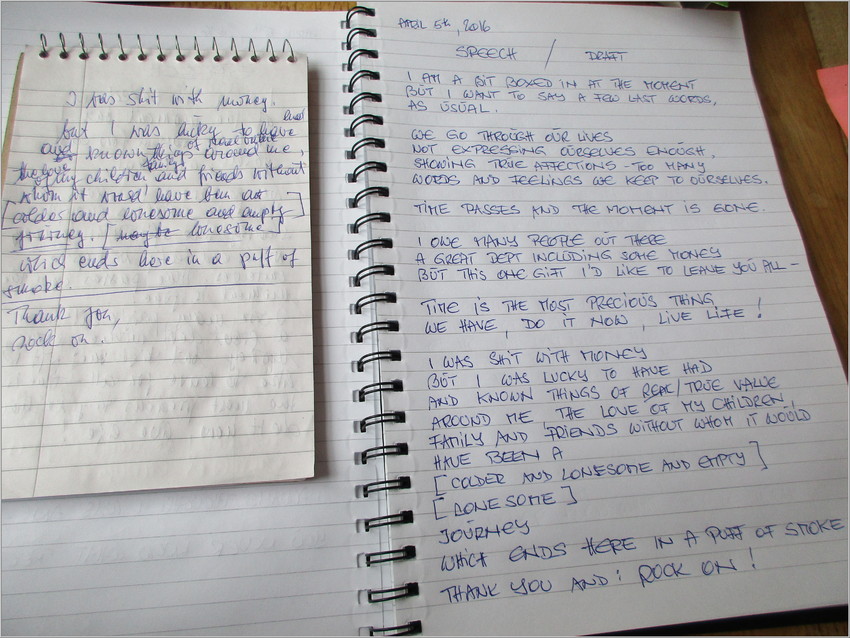 I was shit with money.
but I was lucky to have had
and known things of real value around me,
the love
of my children family and friends without
whom it would have been a
[colder and lonesome and empty]
journey. [maybe lonesome]
which ends here in a puff of
smoke.
Thank you,
rock on.
APRIL 5th, 2016
SPEECH / DRAFT
I AM A BIT BOXED IN AT THE MOMENT
BUT I WANT TO SAY A FEW LAST WORDS,
AS USUAL.
WE GO THROUGH OUR LIVES
NOT EXPRESSING OURSELVES ENOUGH,
SHOWING TRUE AFFECTIONS - TOO MANY
WORDS AND FEELINGS WE KEEP TO OURSELVES.
TIME PASSES AND THE MOMENT IS GONE.
I OWE MANY PEOPLE OUT THERE
A GREAT DEPT INCLUDING SOME MONEY
BUT THIS ONE GIFT I'D LIKE TO LEAVE YOU ALL -
TIME IS THE MOST PRECIOUS THING
WE HAVE, DO IT NOW, LIVE LIFE!
I WAS SHIT WITH MONEY
BUT I WAS LUCKY TO HAVE HAD
AND KNOWN THINGS OF REAL/TRUE VALUE
AROUND ME, THE LOVE OF MY CHILDREN,
FAMILY AND FRIENDS WITHOUT WHOM IT WOULD
HAVE BEEN A
[COLDER AND LONESOME AND EMPTY]
[LONESOME]
JOURNEY
WHICH ENDS HERE IN A PUFF OF SMOKE
THANK YOU AND: ROCK ON!